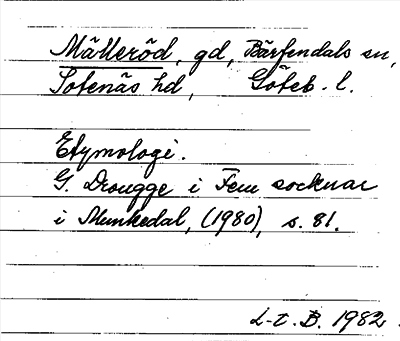 Mälleröd, gd, Bärfendals sn,
Sotenäs hd, Göteb. l.
Etymologi.
G. Drougge i Fem socknar
i Munkedal, (1980), s. 81.
L-t. B. 1982.